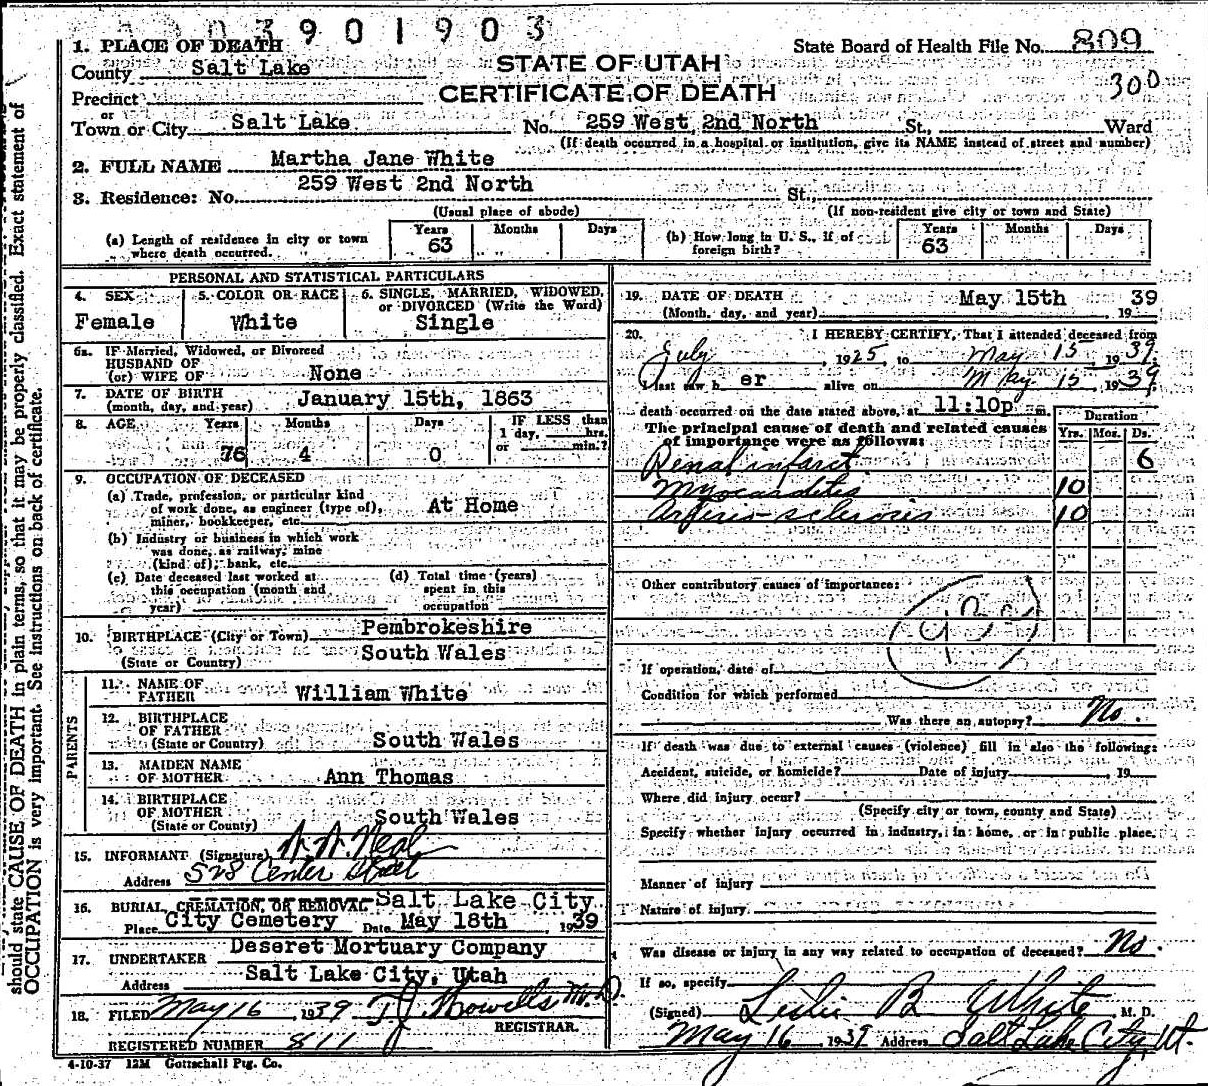 3901903
1. PLACE OF DEATH
County Salt Lake
Precinct
or
Town or City Salt Lake No. 259 West 2nd North St., Ward
(If death occurred in a hospital or institution, give its NAME instead of street and number)
State Board of Health File No. 809
300
STATE OF UTAH
CERTIFICATE OF DEATH
2. FULL NAME Martha Jane White
3. Residence: No. 259 West 2nd North St.,
(Usual place of abode) (If non-resident give city or town and State)
(a) Length of residence in city or town where death occurred. Years 63 Months Days
(b) How long in U. S., if of foreign birth? Years 63 Months Days
should state CAUSE OF DEATH in plain terms, so that it may be properly classified. Exact statement of
OCCUPATION is very important. See instructions on back of certificate.
PERSONAL AND STATISTICAL PARTICULARS
4. SEX Female
5. COLOR OR RACE White
6. SINGLE, MARRIED, WIDOWED, or DIVORCED (Write the Word) Single
6a. If Married, Widowed, or Divorced
HUSBAND OF
(or) WIFE OF None
7. DATE OF BIRTH
(month, day, and year) January 15th, 1863
8. AGE Years 76 Months 4 Days 0 IF LESS than 1 day, hrs. or min.?
9. OCCUPATION OF DECEASED
(a) Trade, profession, or particular kind
of work done, as engineer (type of),
miner, bookkeeper, etc. At Home
(b) Industry or business in which work
was done, as railway, mine
(kind of), bank, etc.
(c) Date deceased last worked at
this occupation (month and
year)
(d) Total time (years)
spent in this
occupation
10. BIRTHPLACE (City or Town) Pembrokeshire
(State or Country) South Wales
PARENTS
11. NAME OF
FATHER William White
12. BIRTHPLACE
OF FATHER
(State or Country) South Wales
13. MAIDEN NAME
OF MOTHER Ann Thomas
14. BIRTHPLACE
OF MOTHER
(State or County) South Wales
15. INFORMANT (Signature) A. A. Neal
Address 528 Center Street
16. BURIAL, CREMATION, OR REMOVAL Salt Lake City
Place City Cemetery Date May 18th, 1939
17. UNDERTAKER Deseret Mortuary Company
Address Salt Lake City, Utah
18. FILED May 16 1939 T. J. Howells M. D.
REGISTRAR.
REGISTERED NUMBER 811
4-10-37 12M Gottschall Ptg. Co.
19. DATE OF DEATH May 15th 39
(Month, day, and year) , 19
20. I HEREBY CERTIFY, That I attended deceased from
July, 1925, to May 15, 1939.
I last saw h er alive on May 15, 1939
death occurred on the date stated above, at 11:10p m.
The principal cause of death and related causes
of importance were as follows:
Duration
Yrs. Mos. Ds.
Renal infarct 6
Myocarditis 10
Arterio-sclerosis 10
Other contributory causes of importance:
If operation, date of
Condition for which performed
Was there an autopsy? No.
If death was due to external causes (violence) fill in also the following:
Accident, suicide, or homicide? Date of injury , 19
Where did injury occur?
(Specify city or town, county and State)
Specify whether injury occurred in industry, in home, or in public place.
Manner of injury
Nature of injury
Was disease or injury in any way related to occupation of deceased? No.
If so, specify
(Signed) Leslie B White M. D.
May 16 1939 Address Salt Lake City, Ut.